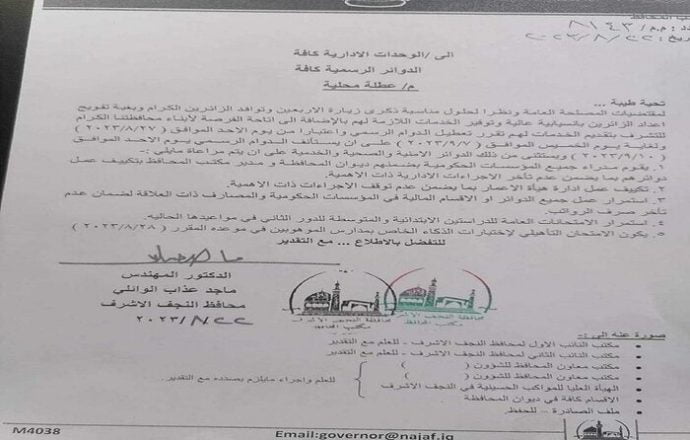 المحافظ
م.م / ٨١٤٣
٢٠٢٣/٨/٢٢
الى /الوحدات الادارية كافة
الدوائر الرسمية كافة
م/ عطلة محلية
تحية طيبة ...
لمقتضيات المصلحة العامة ونظرا لحلول مناسبة ذكرى زيارة الاربعين وتوافد الزائرين الكرام وبغية تفويج
اعداد الزائرين بانسيابية عالية وتوفير الخدمات اللازمة لهم بالإضافة الى اتاحة الفرصة لأبناء محافظتنا الكرام
للتشرف بتقديم الخدمات لهم تقرر تعطيل الدوام الرسمي واعتبارا من يوم الاحد الموافق ( ٢٠٢٣/٨/٢٧ )
ولغاية يوم الخميس الموافق ( ٢٠٢٣/٩/٧ ) على ان يستأنف الدوام الرسمي يوم الاحد الموافق
( ٢٠٢٣/٩/١٠ ) ويستثنى من ذلك الدوائر الامنية والصحية والخدمية على ان يتم مراعاة مايلي
١. يقوم مدراء جميع المؤسسات الحكومية بضمنهم ديوان المحافظة و مدير مكتب المحافظ بتكييف عمل
دوائرهم بما يضمن عدم تأخر الاجراءات الادارية ذات الاهمية.
٢. تكييف عمل ادارة هيأة الاعمار بما يضمن عدم توقف الاجراءات ذات الاهمية.
٣. استمرار عمل جميع الدوائر او الاقسام المالية في المؤسسات الحكومية والمصارف ذات العلاقة لضمان عدم
تأخر صرف الرواتب.
٤. استمرار الامتحانات العامة للدراستين الابتدائية والمتوسطة للدور الثاني في مواعيدها الحالية.
٥. يكون الامتحان التأهيلي لإختبارات الذكاء الخاص بمدارس الموهوبين في موعده المقرر ( ٢٠٢٣/٨/٢٨ )
للتفضل بالاطلاع ... مع التقدير
الدكتور المهندس
ماجد عذاب الوائلي
محافظ النجف الاشرف
٢٠٢٣/٨/٢٢
محافظة النجف الاشرف
مكتب المحافظ
محافظة النجف الاشرف
مكتب المحافظ
صورة عنه الى :-
مكتب النائب الاول لمحافظ النجف الاشرف - للعلم مع التقدير
مكتب النائب الثاني لمحافظ النجف الاشرف - للعلم مع التقدير
مكتب معاون المحافظ للشؤون ( )
مكتب معاون المحافظ للشؤون ( )
الهيأة العليا للمواكب الحسينية في النجف الاشرف
للعلم واجراء مايلزم بصدده مع التقدير.
الاقسام كافة في ديوان المحافظة
ملف الصادرة - للحفظ.
M4038
Email:governor@najaf.iq